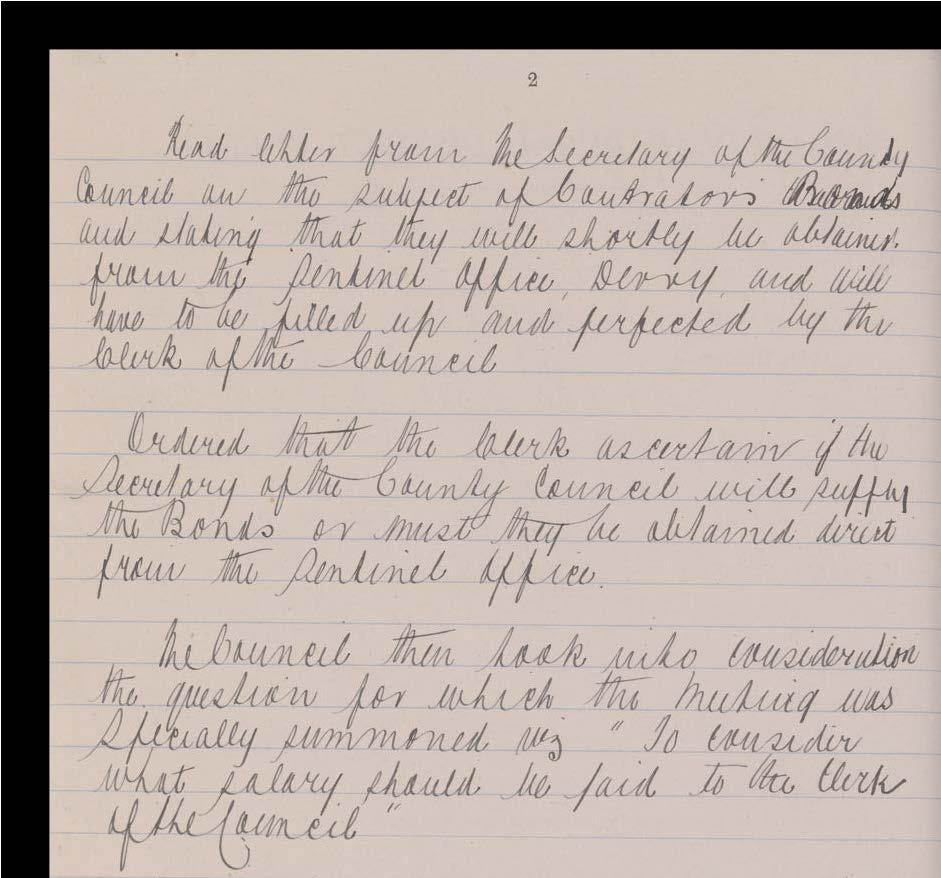 2
Read letter from the Secretary of the County
Council on the subject of Contractors Bonds
and stating that they will shortly be obtained
from the Sentinel Office, Derry, and will
have to be filled up and perfected by the
Clerk of the Council
Ordered that the Clerk ascertain if the
Secretary of the County Council will supply
the Bonds or must they be obtained direct
from the Sentinel Office.
The Council then took into consideration
the question for which the Meeting was
Specially summoned viz "To consider
what salary should be paid to the Clerk
of the Council"